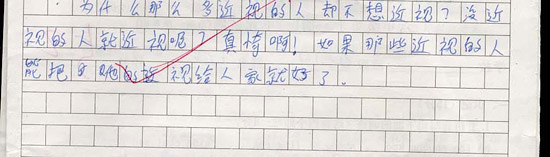 为什么那么多近视的人却不想近视？没近
视的人就近视呢？真椅啊！如果那些近视的人
能把的近视给人家就好了。